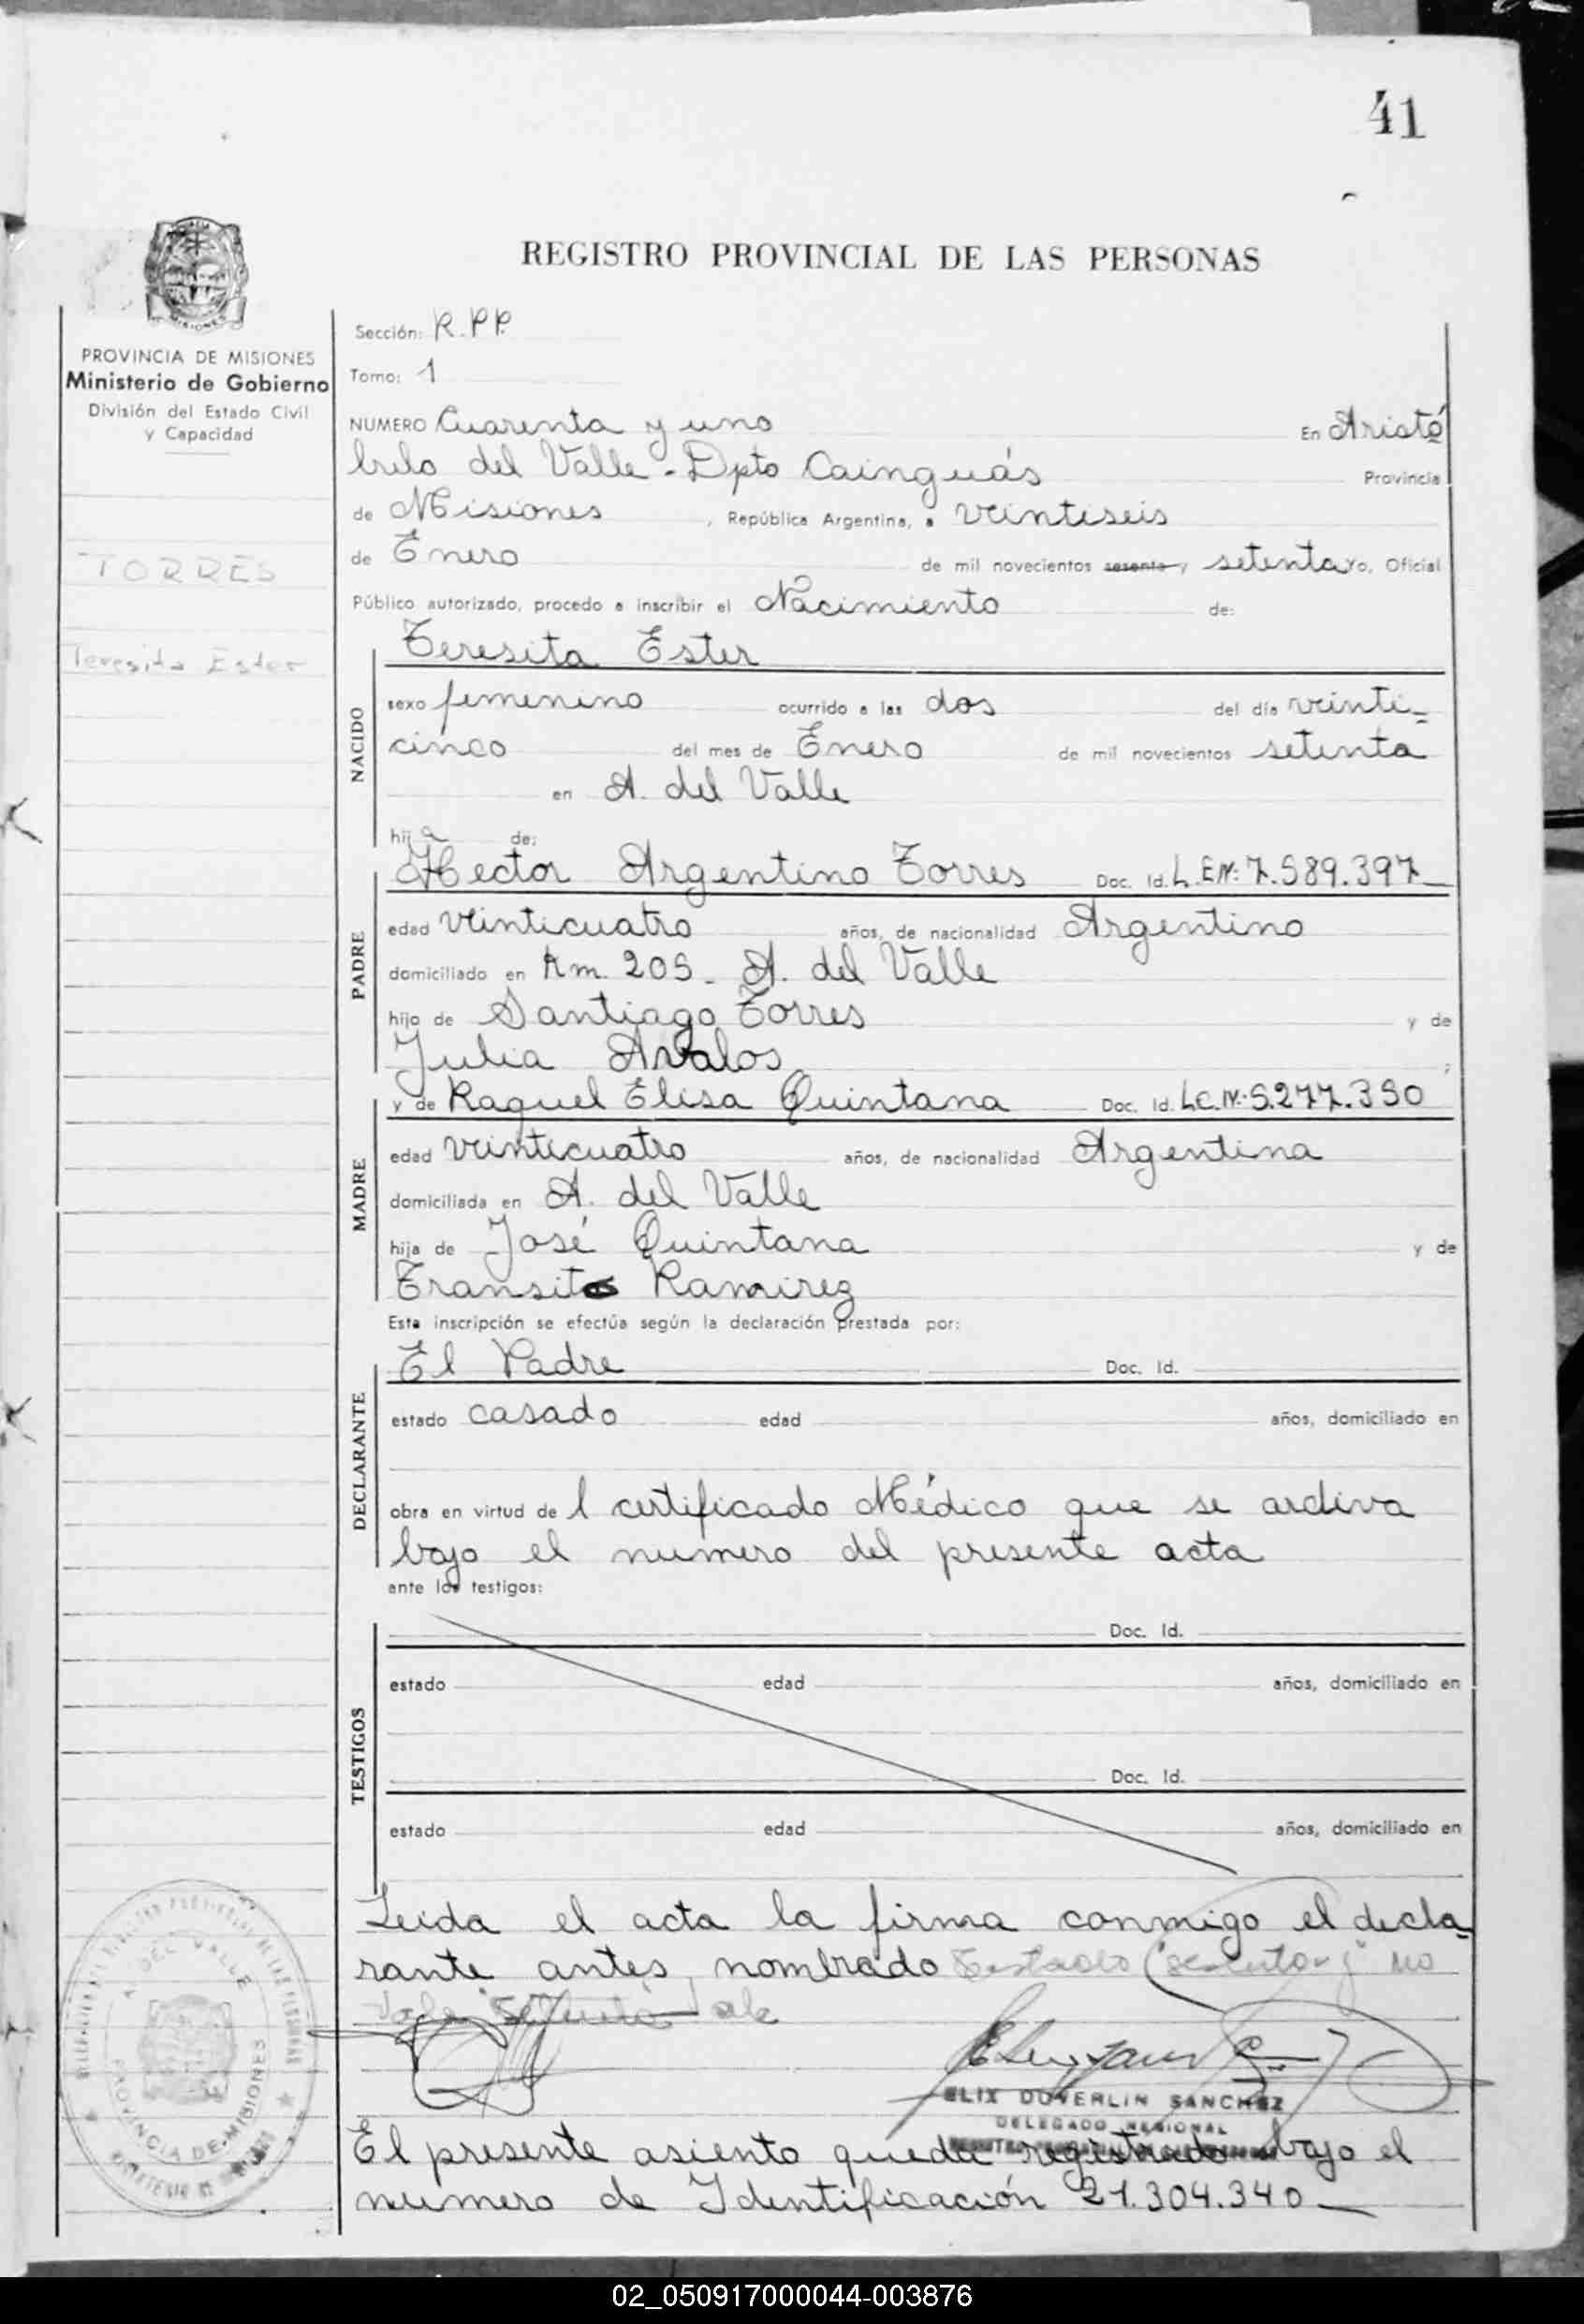 41
REGISTRO PROVINCIAL DE LAS PERSONAS
MISIONES
PROVINCIA DE MISIONES
Ministerio de Gobierno
División del Estado Civil
y Capacidad
TORRES
Teresita Ester
Sección: R.P.P.
Tomo: 1
NUMERO Cuarenta y uno En Aristó
bulo del Valle - Dpto Cainguás Provincia
de Misiones, República Argentina, a veintiseis
de Enero de mil novecientos sesenta y setenta Yo, Oficial
Público autorizado, procedo a inscribir el Nacimiento de:
NACIDO
Teresita Ester
sexo femenino ocurrido a las dos del día veinti=
cinco del mes de Enero de mil novecientos setenta
en A. del Valle
hija de:
PADRE
Hector Argentino Torres Doc. Id. L.E.Nº: 7.589.397
edad veinticuatro años, de nacionalidad Argentino
domiciliado en Km. 205 - A. del Valle
hijo de Santiago Torres y de
Julia Avalos ;
MADRE
y de Raquel Elisa Quintana Doc. Id. L.C.Nº. 5.277.350
edad veinticuatro años, de nacionalidad Argentina
domiciliada en A. del Valle
hija de José Quintana y de
Transito Ramirez
Esta inscripción se efectúa según la declaración prestada por:
DECLARANTE
El Padre Doc. Id.
estado casado edad años, domiciliado en
obra en virtud de l certificado Médico que se archiva
bajo el numero del presente acta
ante los testigos:
TESTIGOS
Doc. Id.
estado edad años, domiciliado en
Doc. Id.
estado edad años, domiciliado en
Leida el acta la firma conmigo el decla=
rante antes nombrado Testado ("sesenta y" no
vale "Setenta" vale
A. DEL VALLE
PROVINCIA DE MISIONES
ELIX DUVERLIN SANCHEZ
DELEGADO REGIONAL
El presente asiento queda registrado bajo el
numero de Identificación 21.304.340
02_050917000044-003876